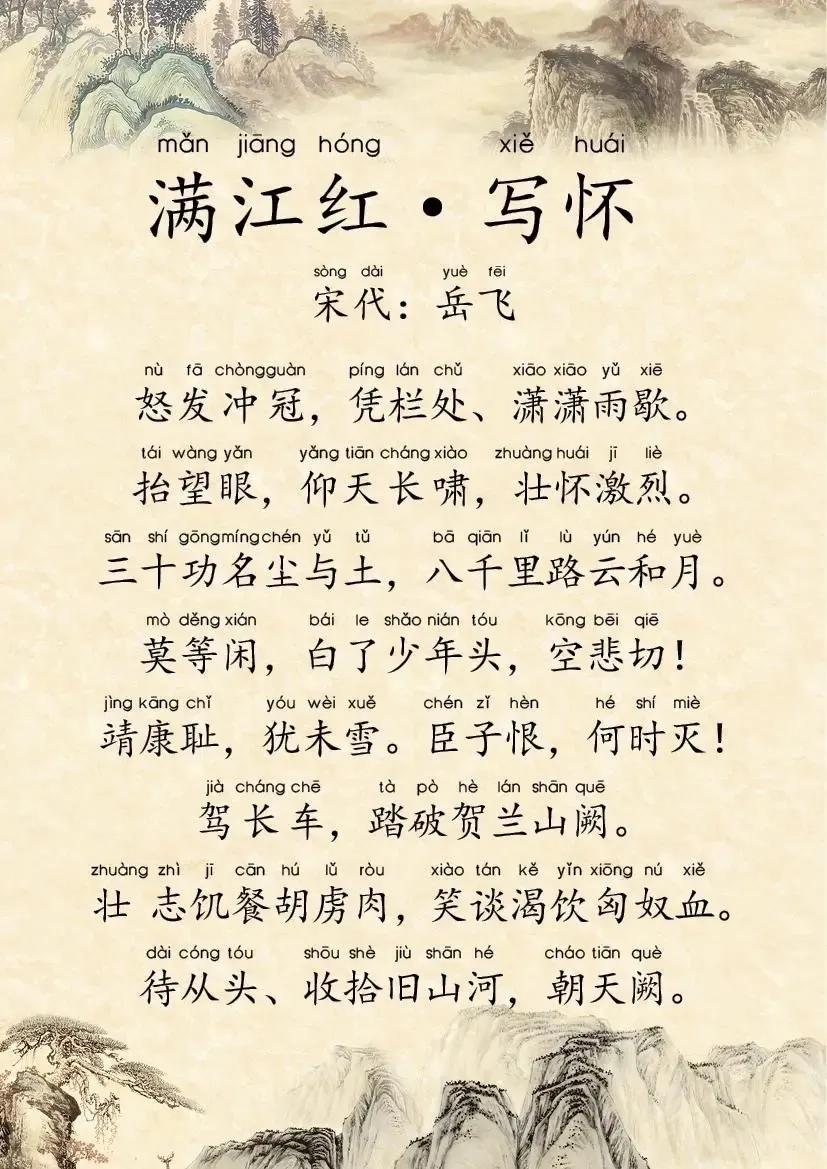 mǎn jiāng hóng xiě huái
满江红·写怀
sòng dài yuè fēi
宋代：岳飞
nù fā chòngguàn píng lán chǔ xiāo xiāo yǔ xiē
怒发冲冠，凭栏处、潇潇雨歇。
tái wàng yǎn yǎng tiān cháng xiào zhuàng huái jī liè
抬望眼，仰天长啸，壮怀激烈。
sān shí gōngmíngchén yǔ tǔ bā qiān lǐ lù yún hé yuè
三十功名尘与土，八千里路云和月。
mò děng xián bái le shǎo nián tóu kōng bēi qiē
莫等闲，白了少年头，空悲切！
jìng kāng chǐ yóu wèi xuě chén zǐ hèn hé shí miè
靖康耻，犹未雪。臣子恨，何时灭！
jià cháng chē tà pò hè lán shān quē
驾长车，踏破贺兰山阙。
zhuàng zhì jī cān hú lǔ ròu xiào tán kě yǐn xiōng nú xiě
壮 志饥餐胡虏肉，笑谈渴饮匈奴血。
dài cóng tóu shōu shè jiù shān hé cháo tiān què
待从头、收拾旧山河，朝天阙。